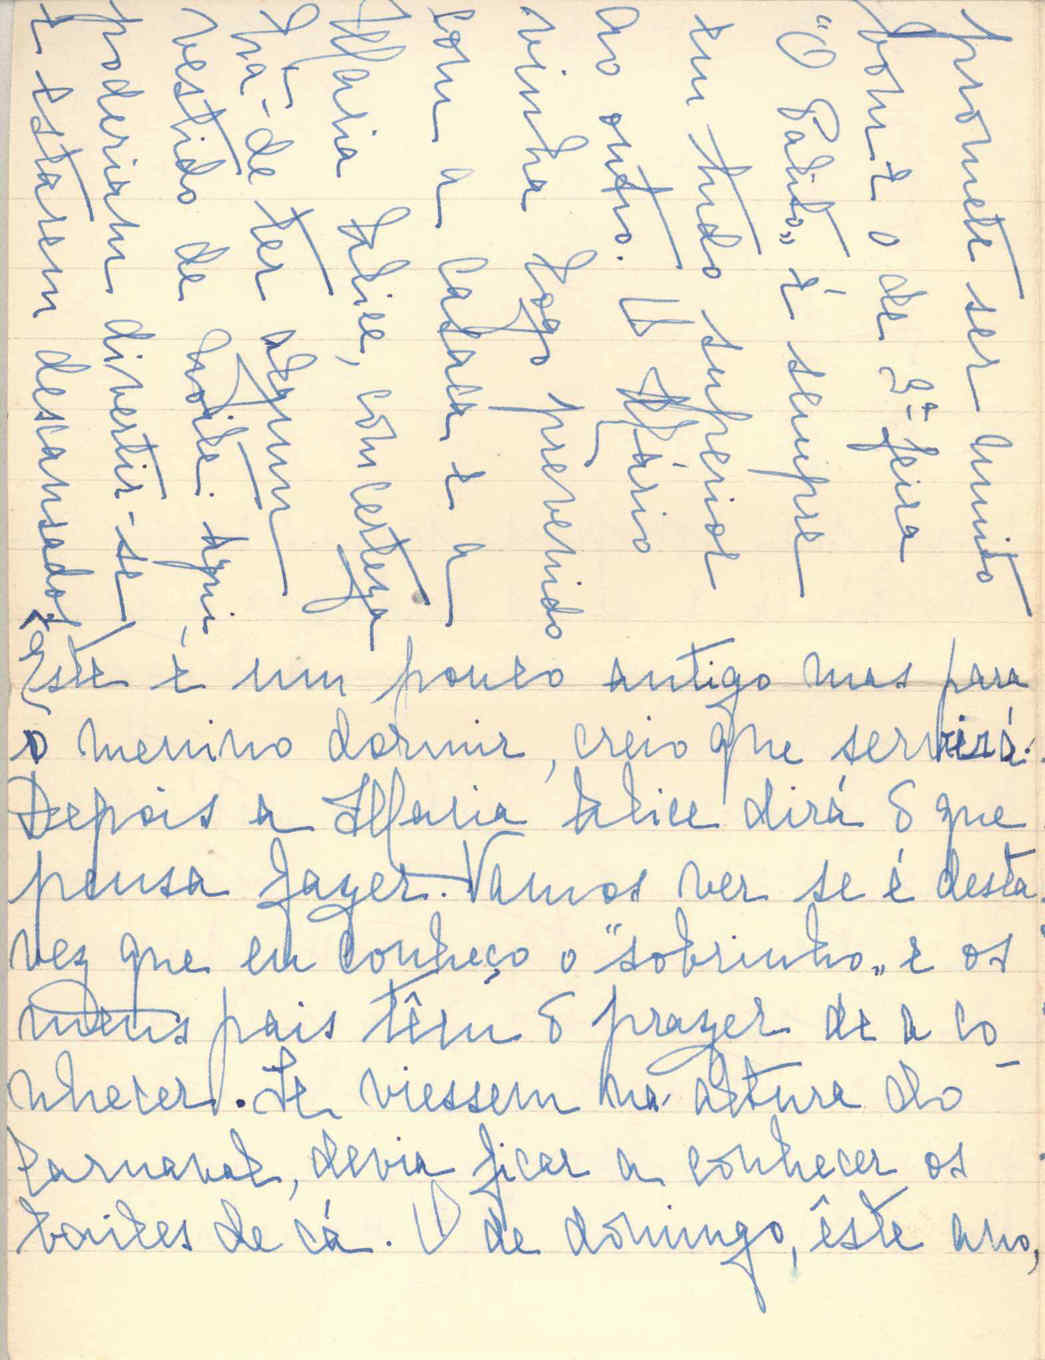 Este é um pouco antigo mas para
o menino dormir, creio que servirá.
Depois a Maria Alice dirá o que
pensa fazer. Vamos ver se é desta
vez que eu conheço o "sobrinho" e os
meus pais têm o prazer de a co-
nhecer. Se viessem na altura do
Carnaval, devia ficar a conhecer os
bailes de cá. O de domingo, êste ano,
promete ser muito
bom e o de 3ª feira
"O Palito" é sempre
em tudo superior
ao outro. O Mário
vinha logo prevenido
com a casaca e a
Maria Alice, com certeza
há-de ter algum
vestido de noite. Aqui,
poderiam divertir-se
e estarem descansados